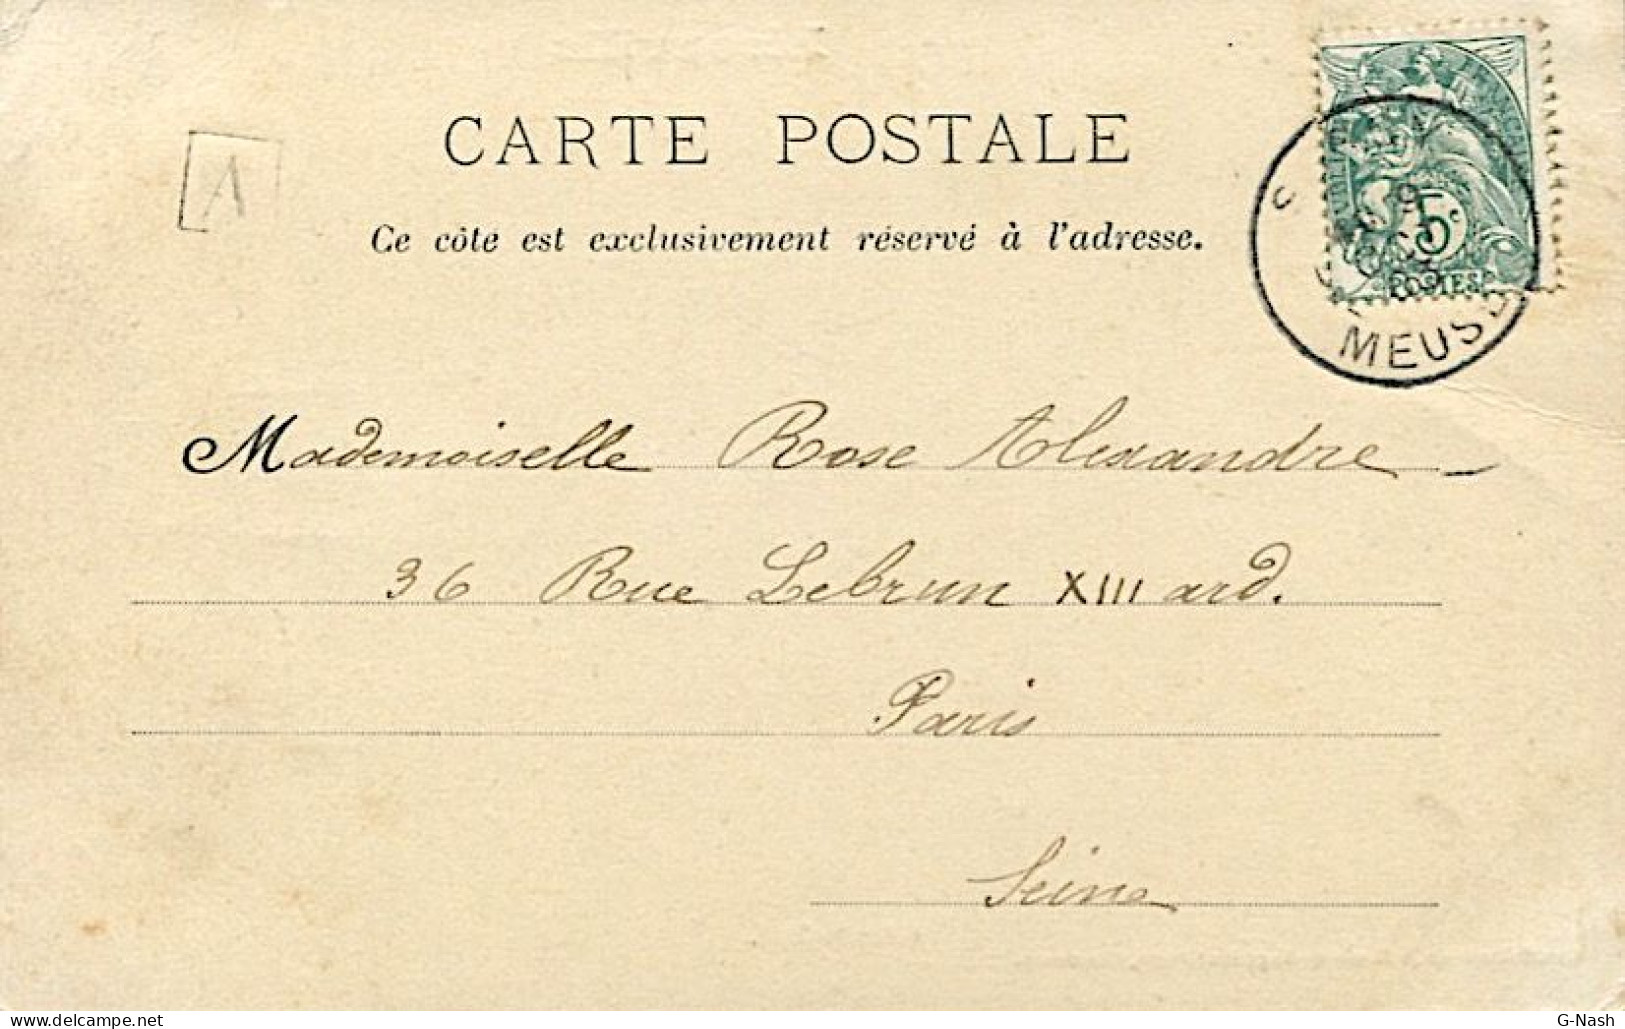 CARTE POSTALE
A
Ce côte est exclusivement réservé à l'adresse.
5c
POSTES
MEUSE
Mademoiselle Rose Alexandre
36 Rue Lebrun XIII ard.
Paris
Seine
delcampe.net
G-Nash